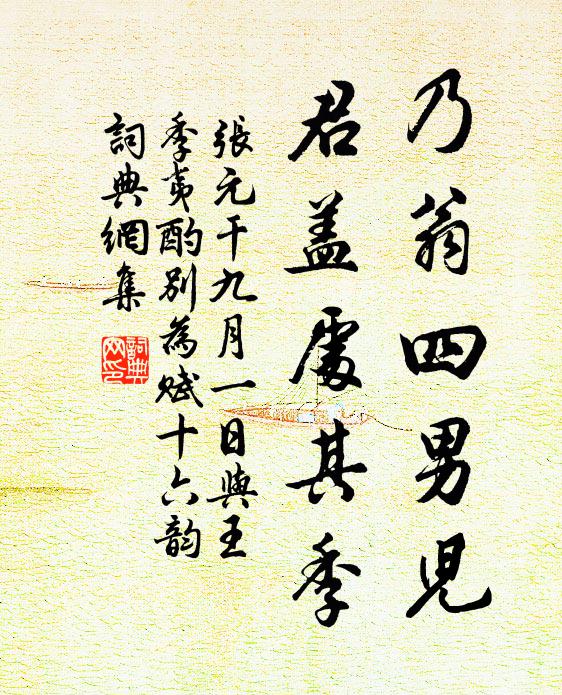 乃翁四男兒
君盖處其季
張元干九月一日與王
季夷酌別為賦十六韵
詞典網集
詞典网印